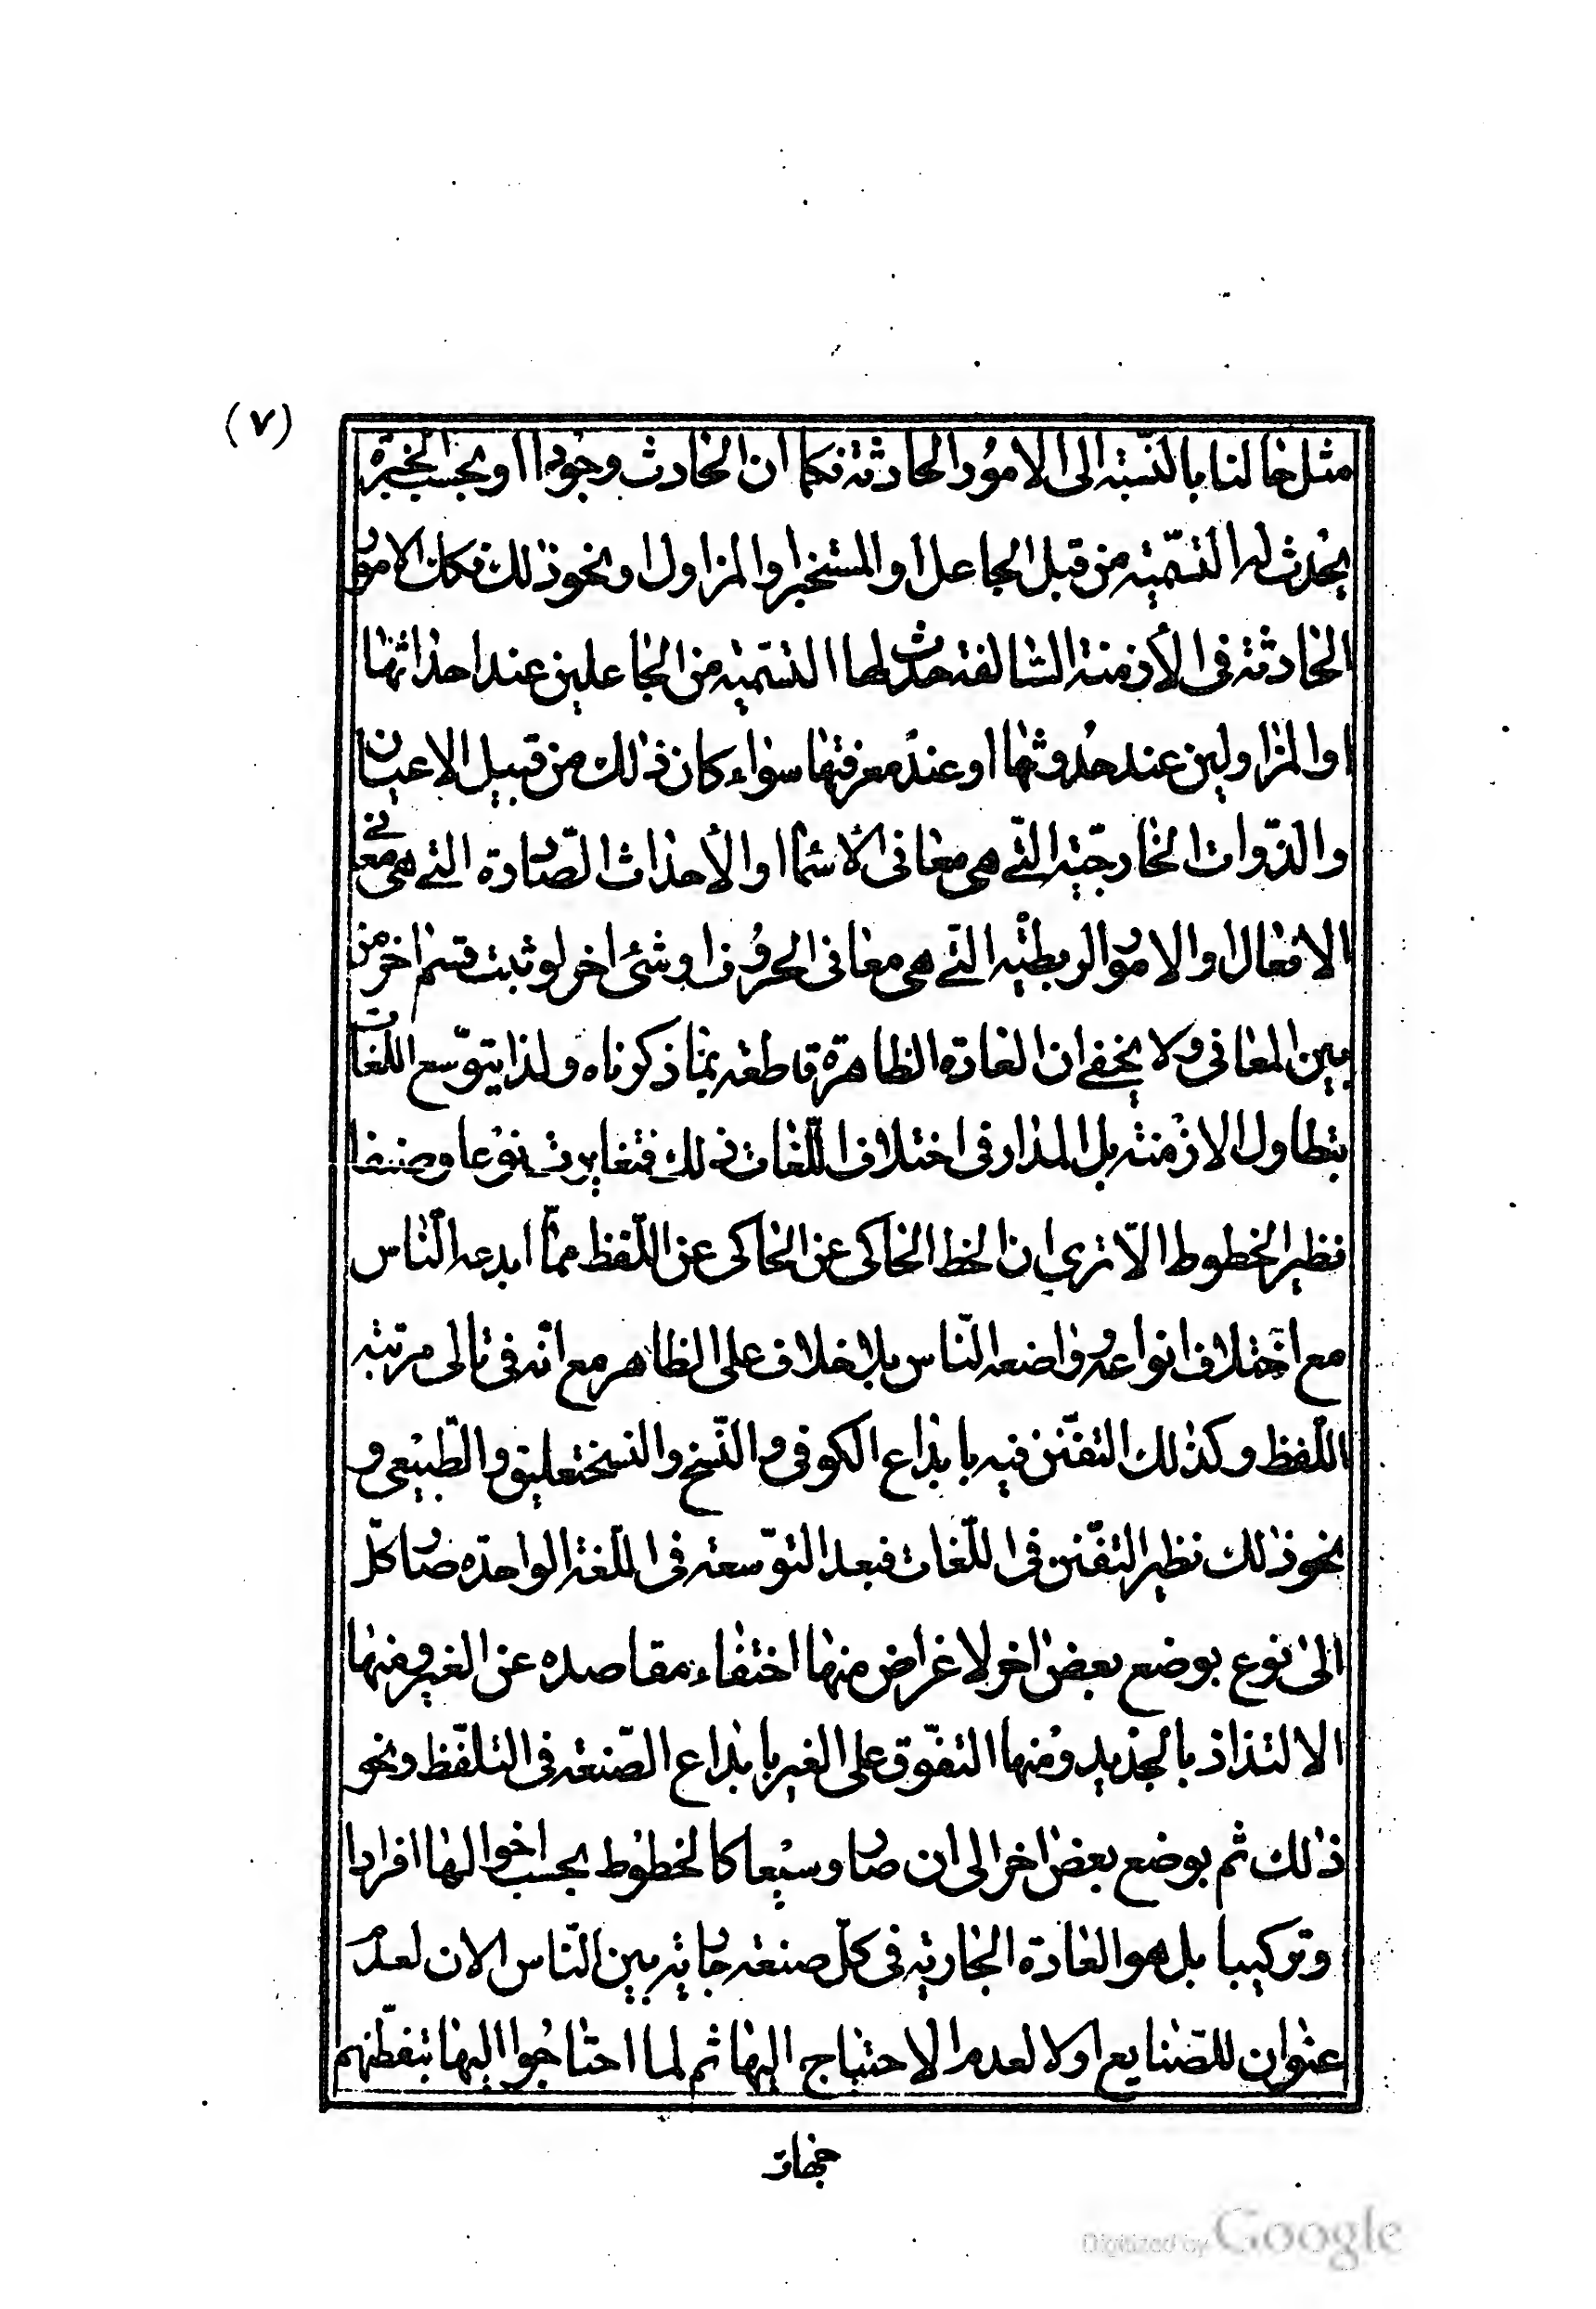 (٧)
مثل حالنا بالنّسبة الى الامور الحادثة فكما ان الحادث وجودا او بحسب الخبرة
يحدث له التّسمية من قبل الجاعل او المستخبر او المزاول او نحو ذلك فكان الامور
الحادثة فى الأزمنة السّالفة حدث لها التسّمية من الجاعلين عند احداثها
او المزاولين عند حدوثها او عند معرفتها سواء كان ذلك من قبيل الاعيان
والذّوات الخارجيّة الّتى هى معانى الأسماء او الأحداث الصّادرة التى هى معانى
الافعال او الامور الربطيّة الّتى هى معانى الحروف او شئ اخر لو ثبت قسم اخر من
بين المعانى ولا يخفى ان العادة الظاهرة قاطعة بما ذكرناه ولذا يتوّسع اللغات
بتطاول الازمنة بل المدار فى اختلاف اللّغات ذلك فتغايرت نوعا وصنفا
نظير الخطوط الّا ترى ان الخط الحاكى عن الحاكى عن اللّفظ ممّا ابدعه النّاس
مع اختلاف انواعه وواضعه النّاس بلا خلاف على الظاهر مع انّه فى تالى مرتبة
اللّفظ وكذلك التفنّن فيه بابداع الكوفى والنّسخ والنسختعليق والطّبيعى و
نحو ذلك نظير التفنّن فى اللّغات فبعد التوّسعة فى اللّغة الواحدة صار كلّ
الى نوع بوضع بعض اخر لاغراض منها اختفاء مقاصده عن الغير ومنها
الالتذاذ بالجديد ومنها التفوّق على الغير بابداع الصّنعة فى التلفّظ ونحو
ذلك ثم بوضع بعض اخر الى ان صار وسيعا كالخطوط بحسب احوالها افرادا
وتركيبا بل هو العادة الجارية فى كلّ صنعة جارية بين النّاس الان لعدم
عنوان للصّنايع اولا لعدم الاحتياج اليها ثم لما احتاجوا اليها تبفطّنهم
Digitized by Google